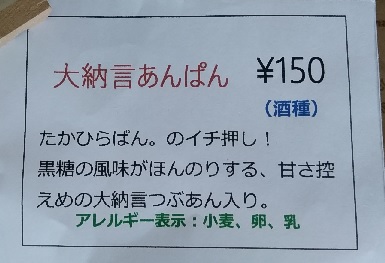 大納言あんぱん ¥150
（酒種）
たかひらぱん。のイチ押し！
黒糖の風味がほんのりする、甘さ控
えめの大納言つぶあん入り。
アレルギー表示：小麦、卵、乳